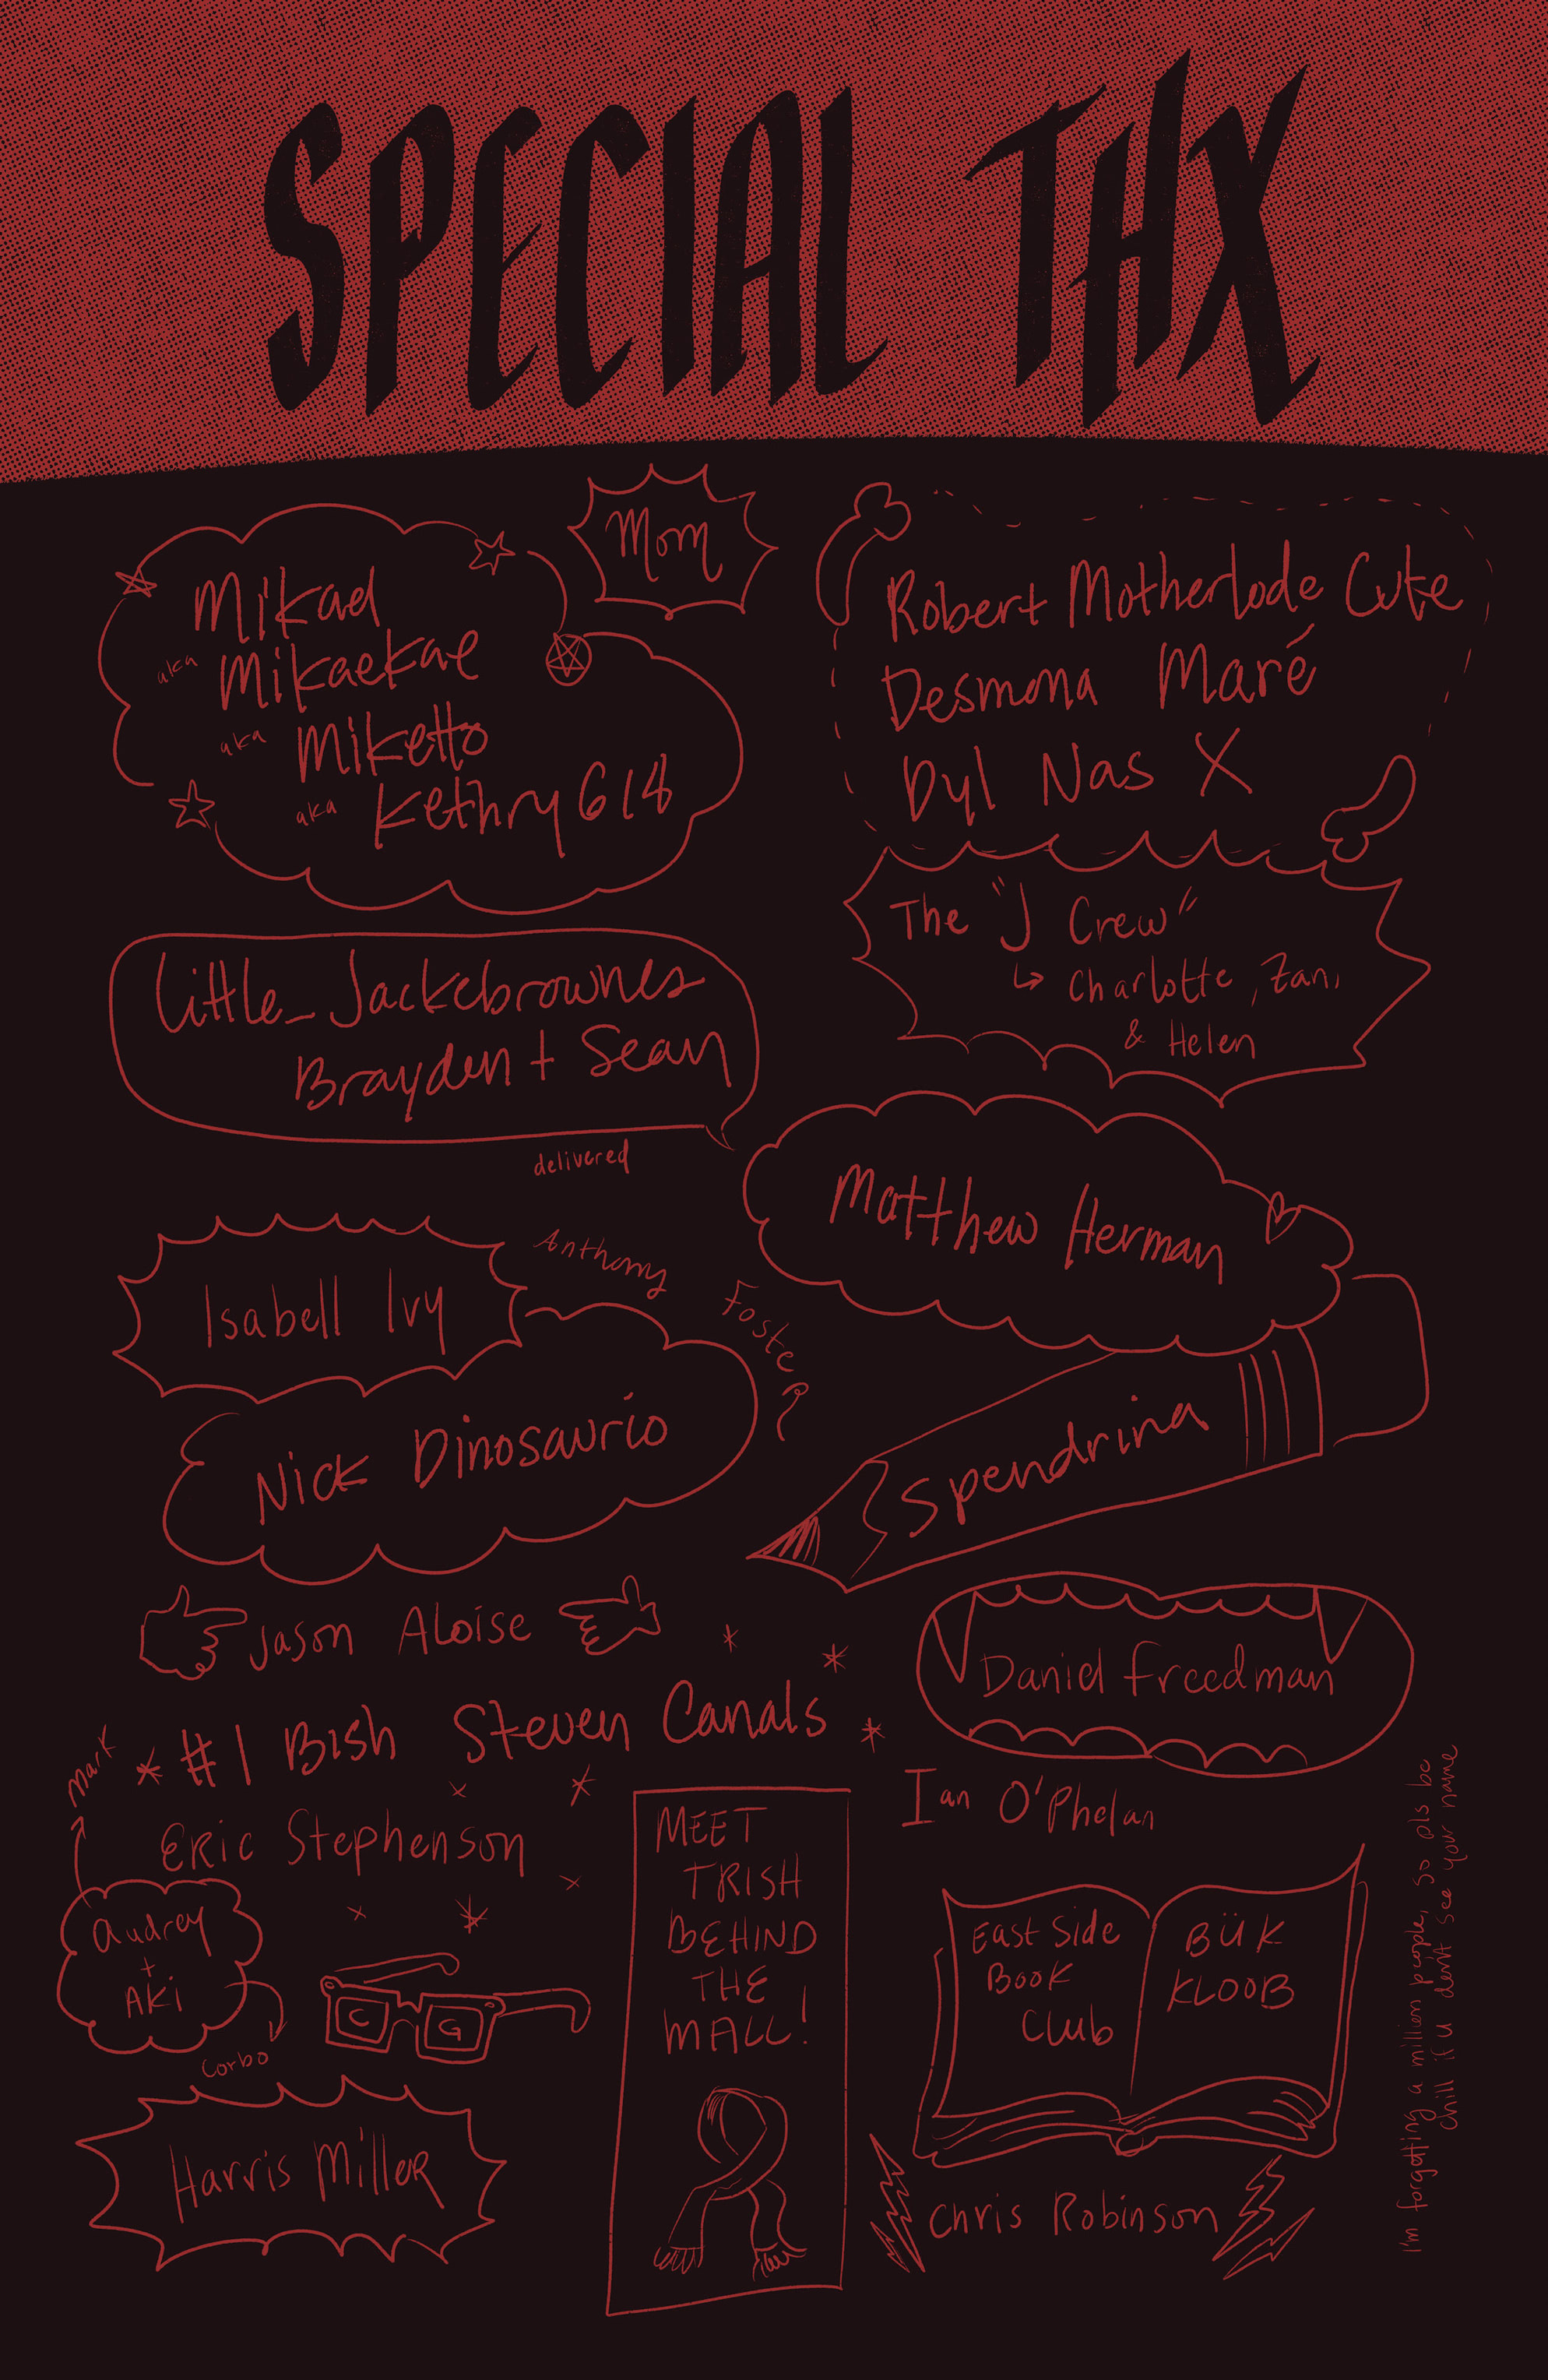 SPECIAL THX
Mom
Mikael
aka Mikaekae
aka Miketto
aka Kethry618
Robert Motherlode Cute
Desmona Maré
Dyl Nas X
The "J Crew"
↳ Charlotte, Zan,
& Helen
Little_Jackebrownes
Brayden + Sean
delivered
Matthew Herman
Isabell Ivy
Anthony
Foster
Nick Dinosaurio
Spendrina
Jason Aloise
Daniel Freedman
#1 Bish Steven Canals
Mark
Eric Stephenson
Audrey
+
Aki
Corbo
C G
Harris Miller
MEET
TRISH
BEHIND
THE
MALL!
Ian O'Phelan
East Side
Book
Club
BÜK
KLOOB
Chris Robinson
I'm forgetting a million people, so pls be
chill if u don't see your name